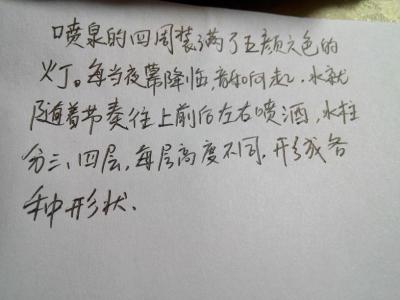 喷泉的四周装满了五颜六色的
灯。每当夜幕降临,音乐响起,水就
随着节奏往上前后左右喷洒,水柱
分三、四层,每层高度不同,形成各
种形状.